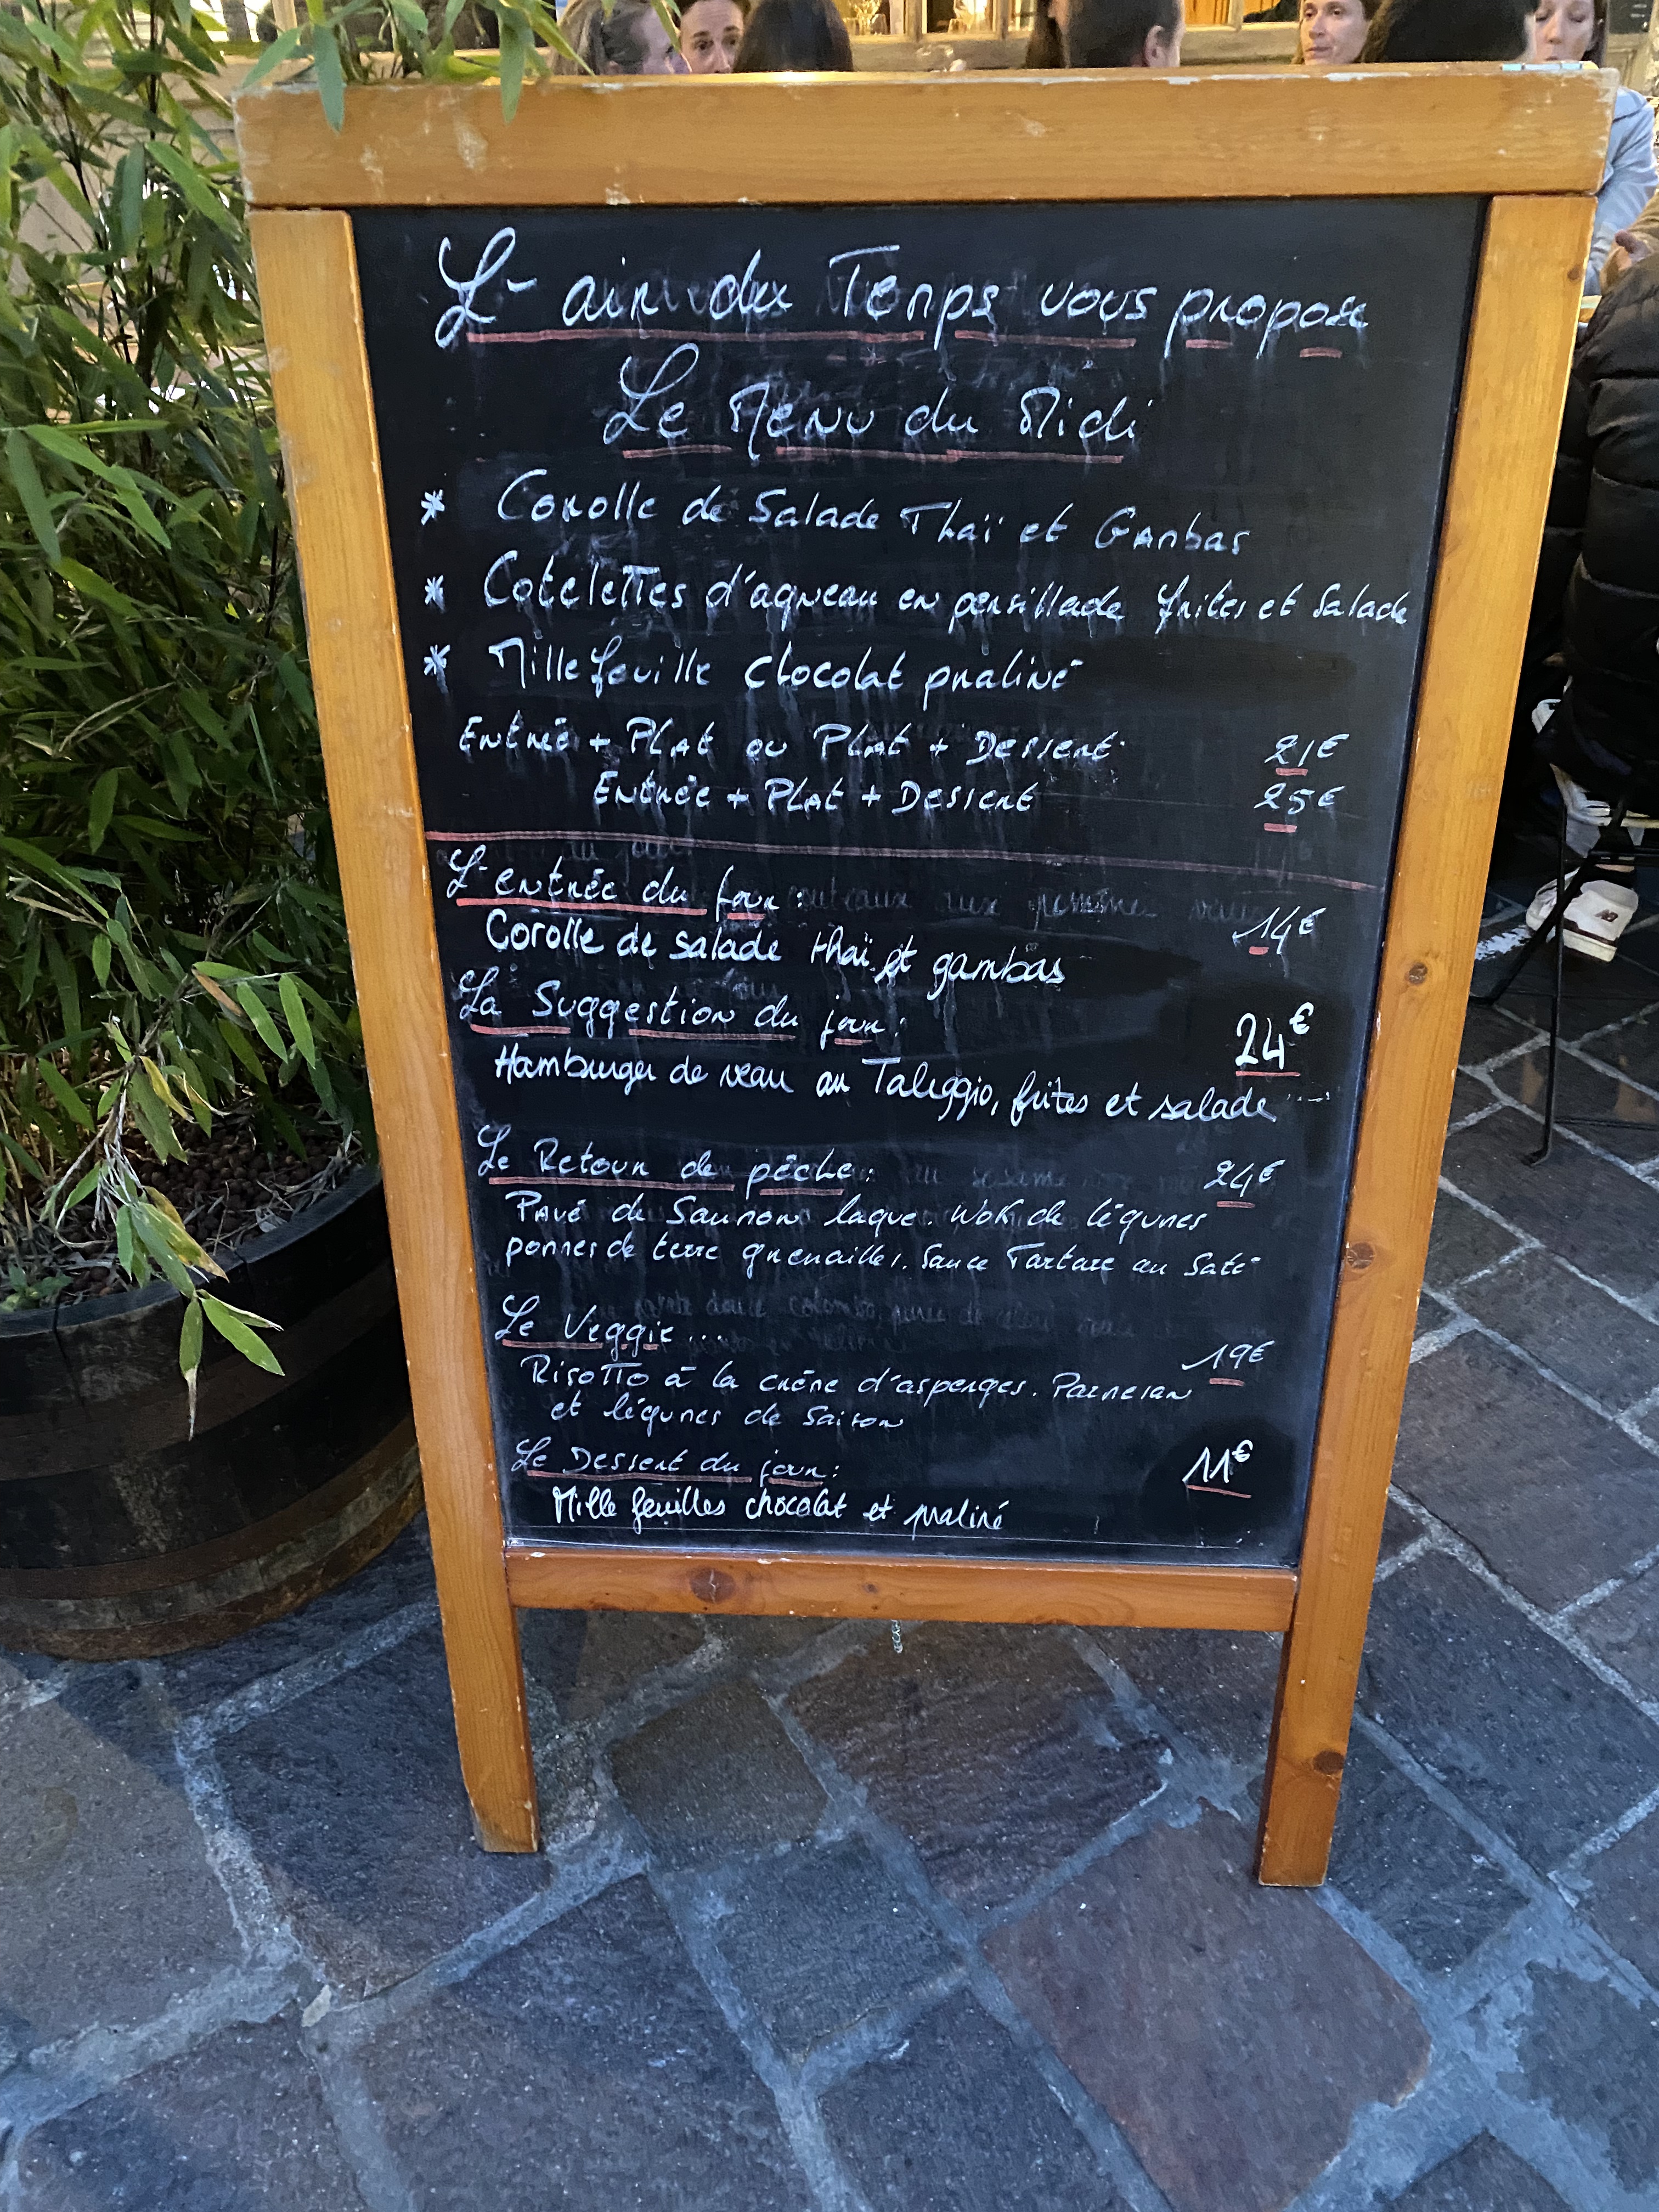 L'air du Temps vous propose
Le Menu du Midi
* Corolle de Salade Thaï et Gambas
* Cotelettes d'agneau en persillade frites et Salade
* Mille feuille chocolat praliné
Entrée + Plat ou Plat + Dessert 21€
Entrée + Plat + Dessert 25€
L'entrée du jour : 14€
Corolle de salade thaï et gambas
La Suggestion du jour : 24€
Hamburger de veau au Taleggio, frites et salade
Le Retour de pêche : 24€
Pavé de Saumon laqué. Wok de légumes
pommes de terre grenailles. Sauce Tartare au Saté
Le Veggie... 19€
Risotto à la crème d'asperges. Parmesan
et légumes de Saison
Le Dessert du jour : 11€
Mille feuilles chocolat et praliné